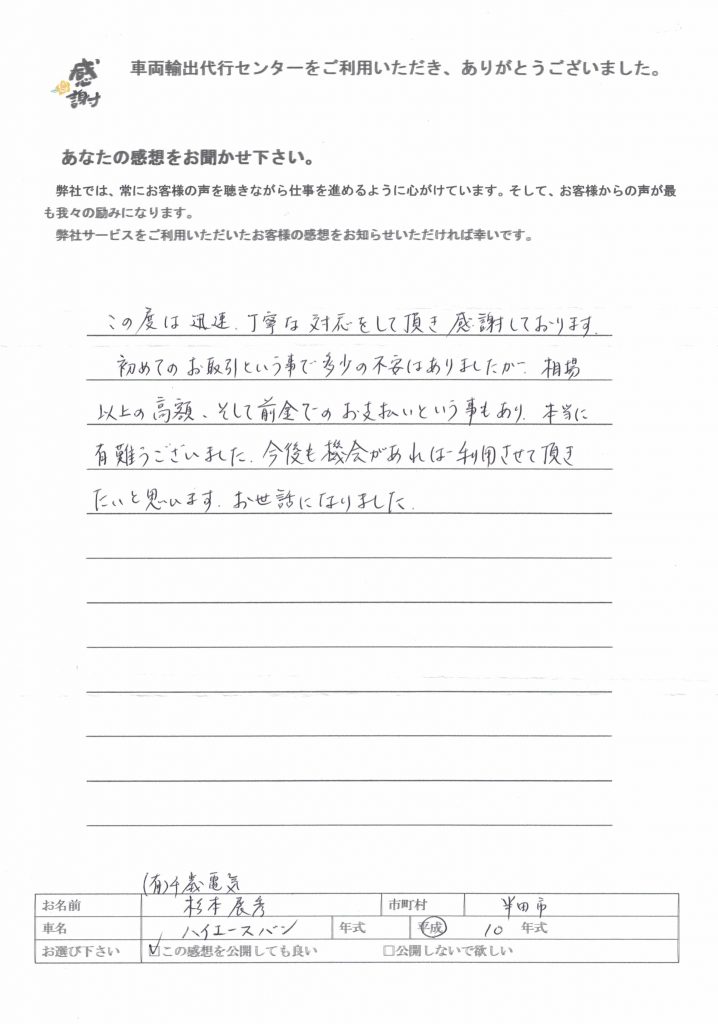 感謝
車両輸出代行センターをご利用いただき、ありがとうございました。
あなたの感想をお聞かせ下さい。
弊社では、常にお客様の声を聴きながら仕事を進めるように心がけています。そして、お客様からの声が最
も我々の励みになります。
弊社サービスをご利用いただいたお客様の感想をお知らせいただければ幸いです。
この度は迅速、丁寧な対応をして頂き感謝しております。
初めてのお取引という事で多少の不安はありましたが、相場
以上の高額、そして前金でのお支払いという事もあり、本当に
有難うございました。今後も機会があれば利用させて頂き
たいと思います。お世話になりました。
(有)千歳電気
お名前 杉本展秀 市町村 半田市
車名 ハイエースバン 年式 平成 10 年式
お選び下さい ☑この感想を公開しても良い □公開しないで欲しい